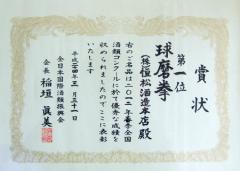 賞状
第一位
球磨拳
(株)恒松酒造本店殿
右のご名品は二〇一二年春季全国
酒類コンクールに於て優秀な成績を
収められましたのでここに表彰
いたします
平成二十四年五月三十一日
全日本国際酒類振興会
会長 稲垣眞美